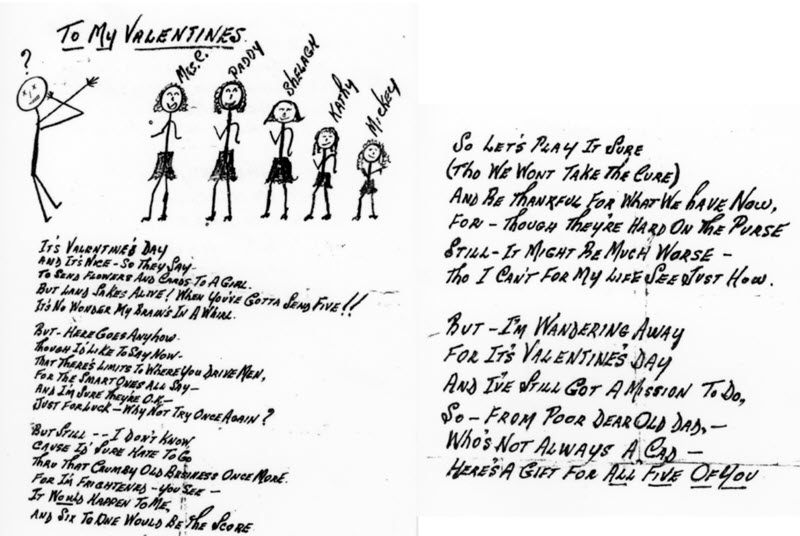 To My Valentines
?
Mrs. C.
Paddy
Shelagh
Kathy
Mickey
It's Valentine's Day
And It's Nice - So They Say -
To Send Flowers And Cards To A Girl.
But Land Sakes Alive! When You've Gotta Send Five!!
It's No Wonder My Brain's In A Whirl.
But - Here Goes Anyhow.
Though I'd Like To Say Now -
That There's Limits To Where You Drive Men,
For The Smart Ones All Say -
And I'm Sure They're O.K. -
Just For Luck - Why Not Try Once Again?
But Still -- I Don't Know
Cause I'd Sure Hate To Go
Thru That Crumby Old Business Once More.
For I'm Frightened - You See -
It Would Happen To Me,
And Six To One Would Be The Score
So Let's Play It Sure
(Tho We Wont Take The Cure)
And Be Thankful For What We Have Now,
For - Though They're Hard On The Purse
Still - It Might Be Much Worse -
Tho I Can't For My Life See Just How.
But - I'm Wandering Away
For It's Valentine's Day
And I've Still Got A Mission To Do,
So - From Poor Dear Old Dad, -
Who's Not Always A Cad -
Here's A Gift For All Five Of You